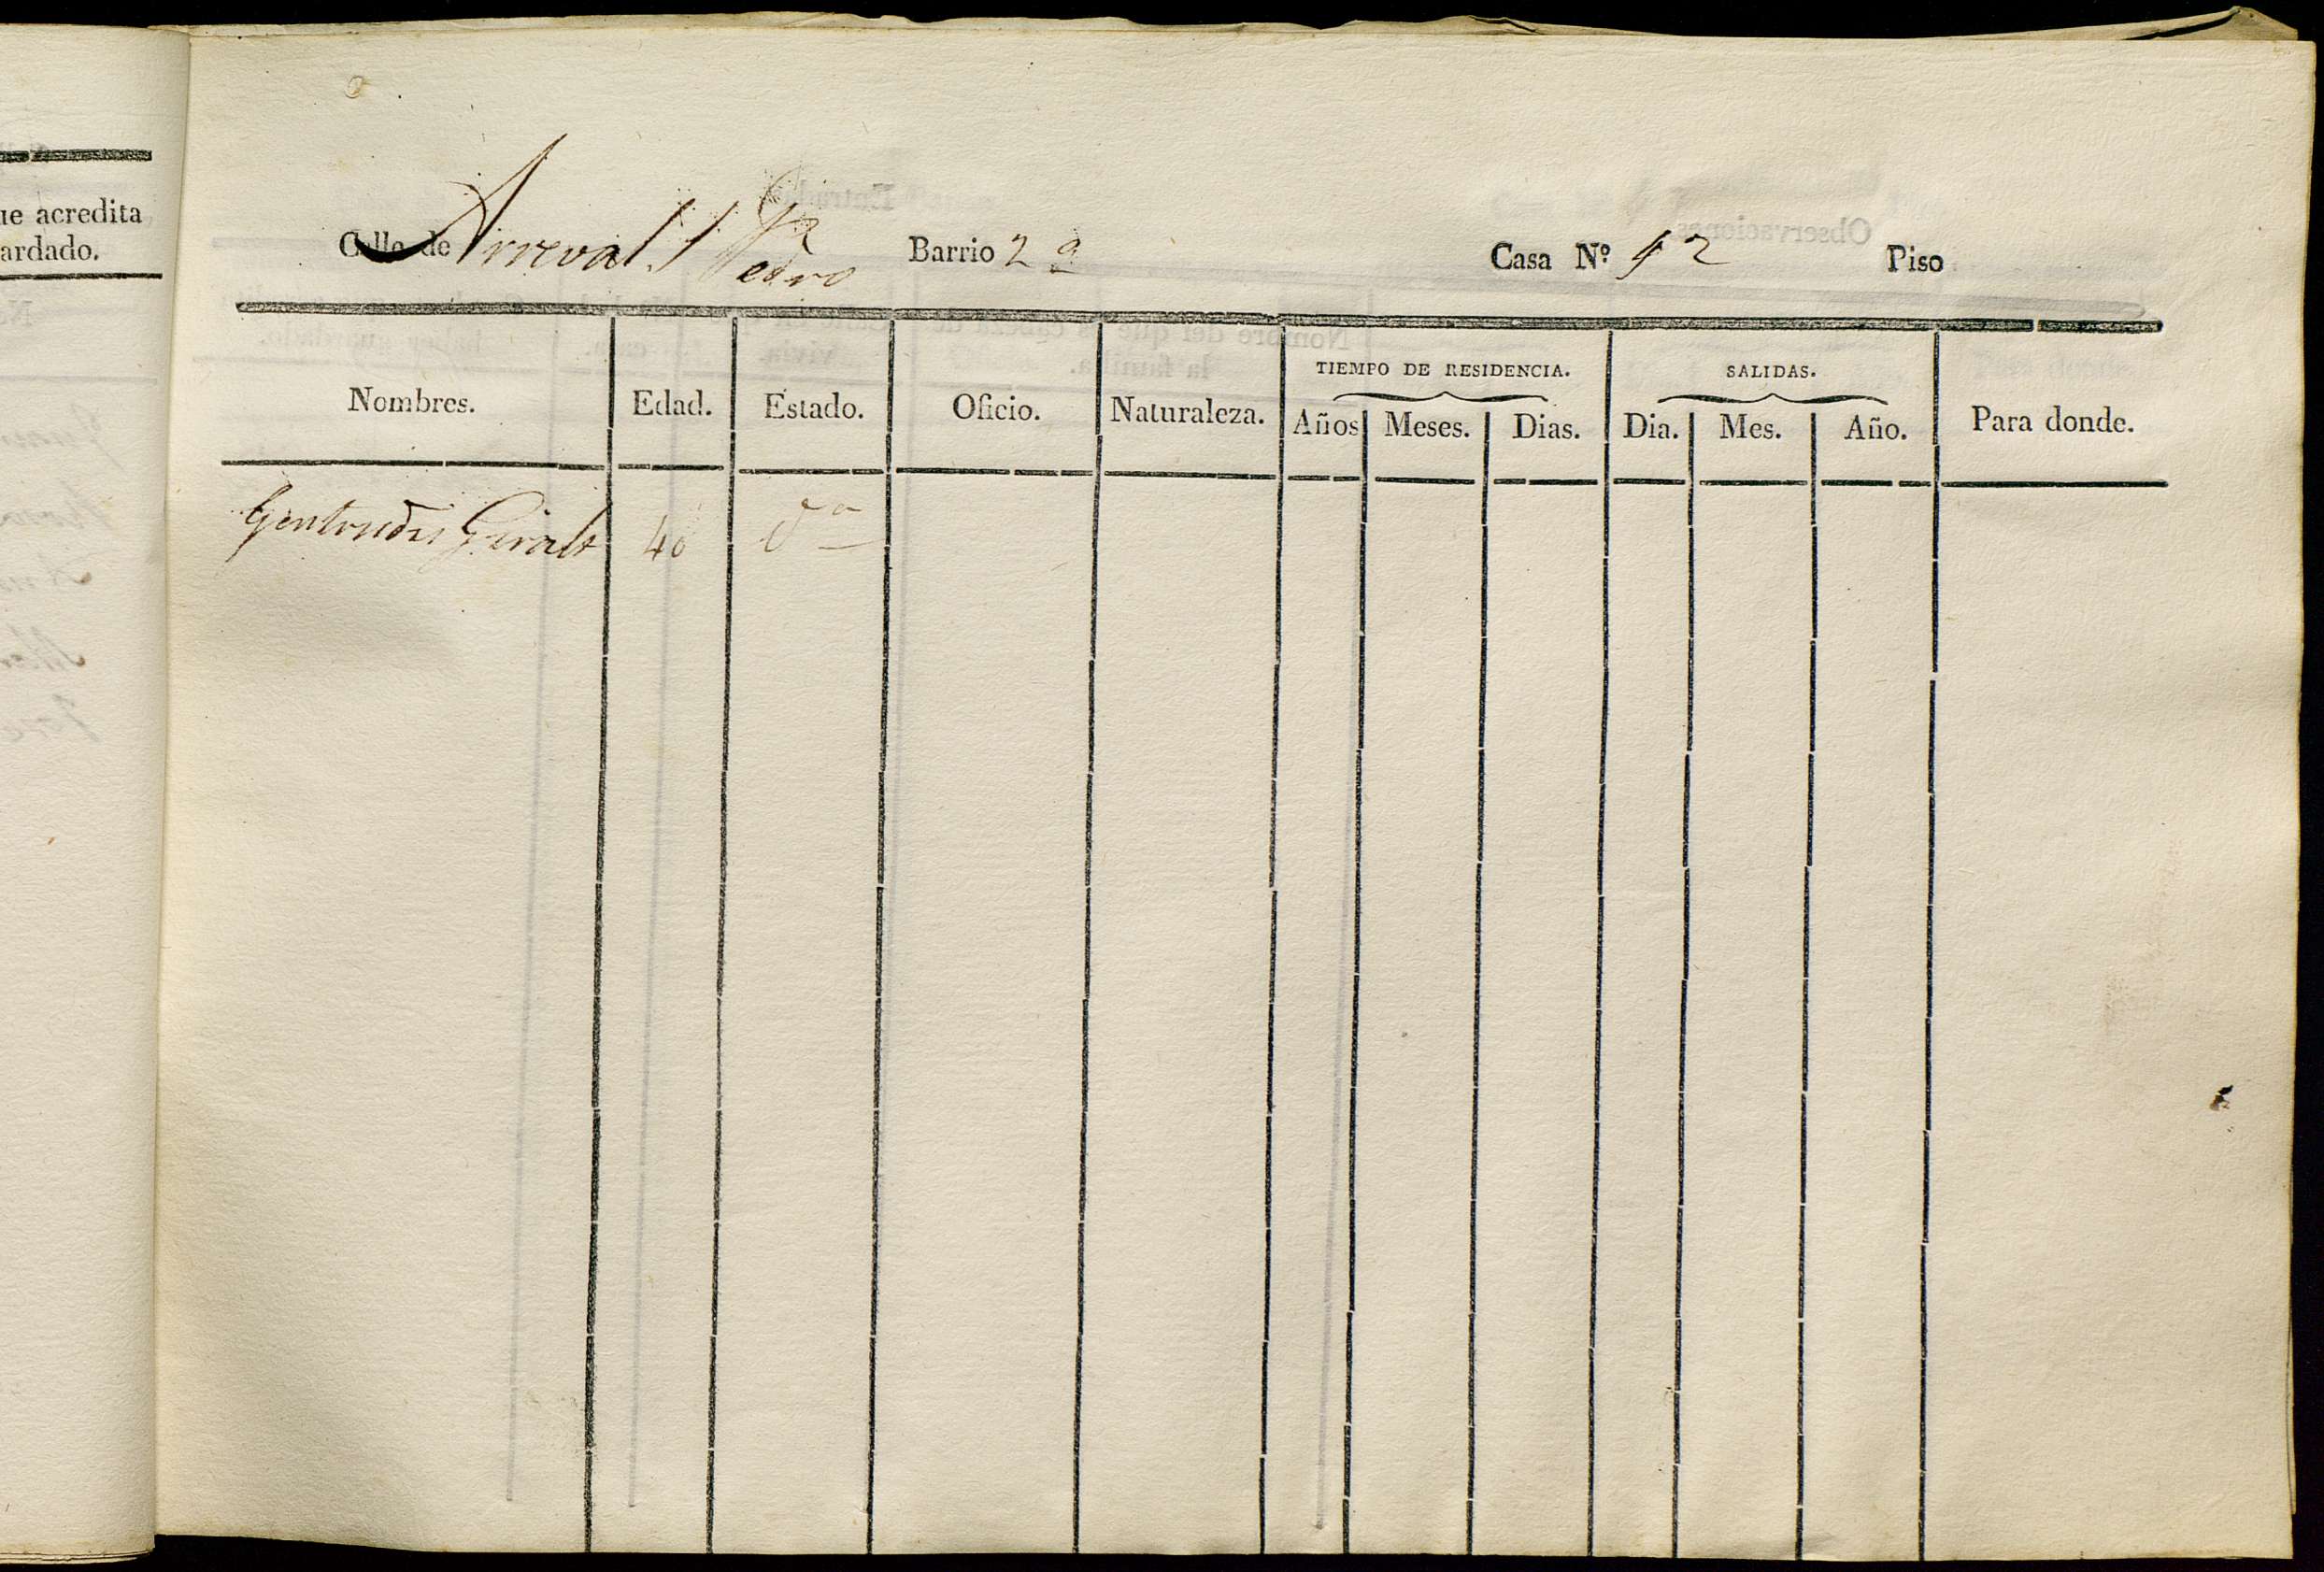 ue acredita
ardado.
Calle de Arreval S. Pedro Barrio 2º Casa Nº 42 Piso
Nombres. Edad. Estado. Oficio. Naturaleza. TIEMPO DE RESIDENCIA. SALIDAS. Para donde.
Años Meses. Dias. Dia. Mes. Año.
Gertrudis Giralt 40 Vª